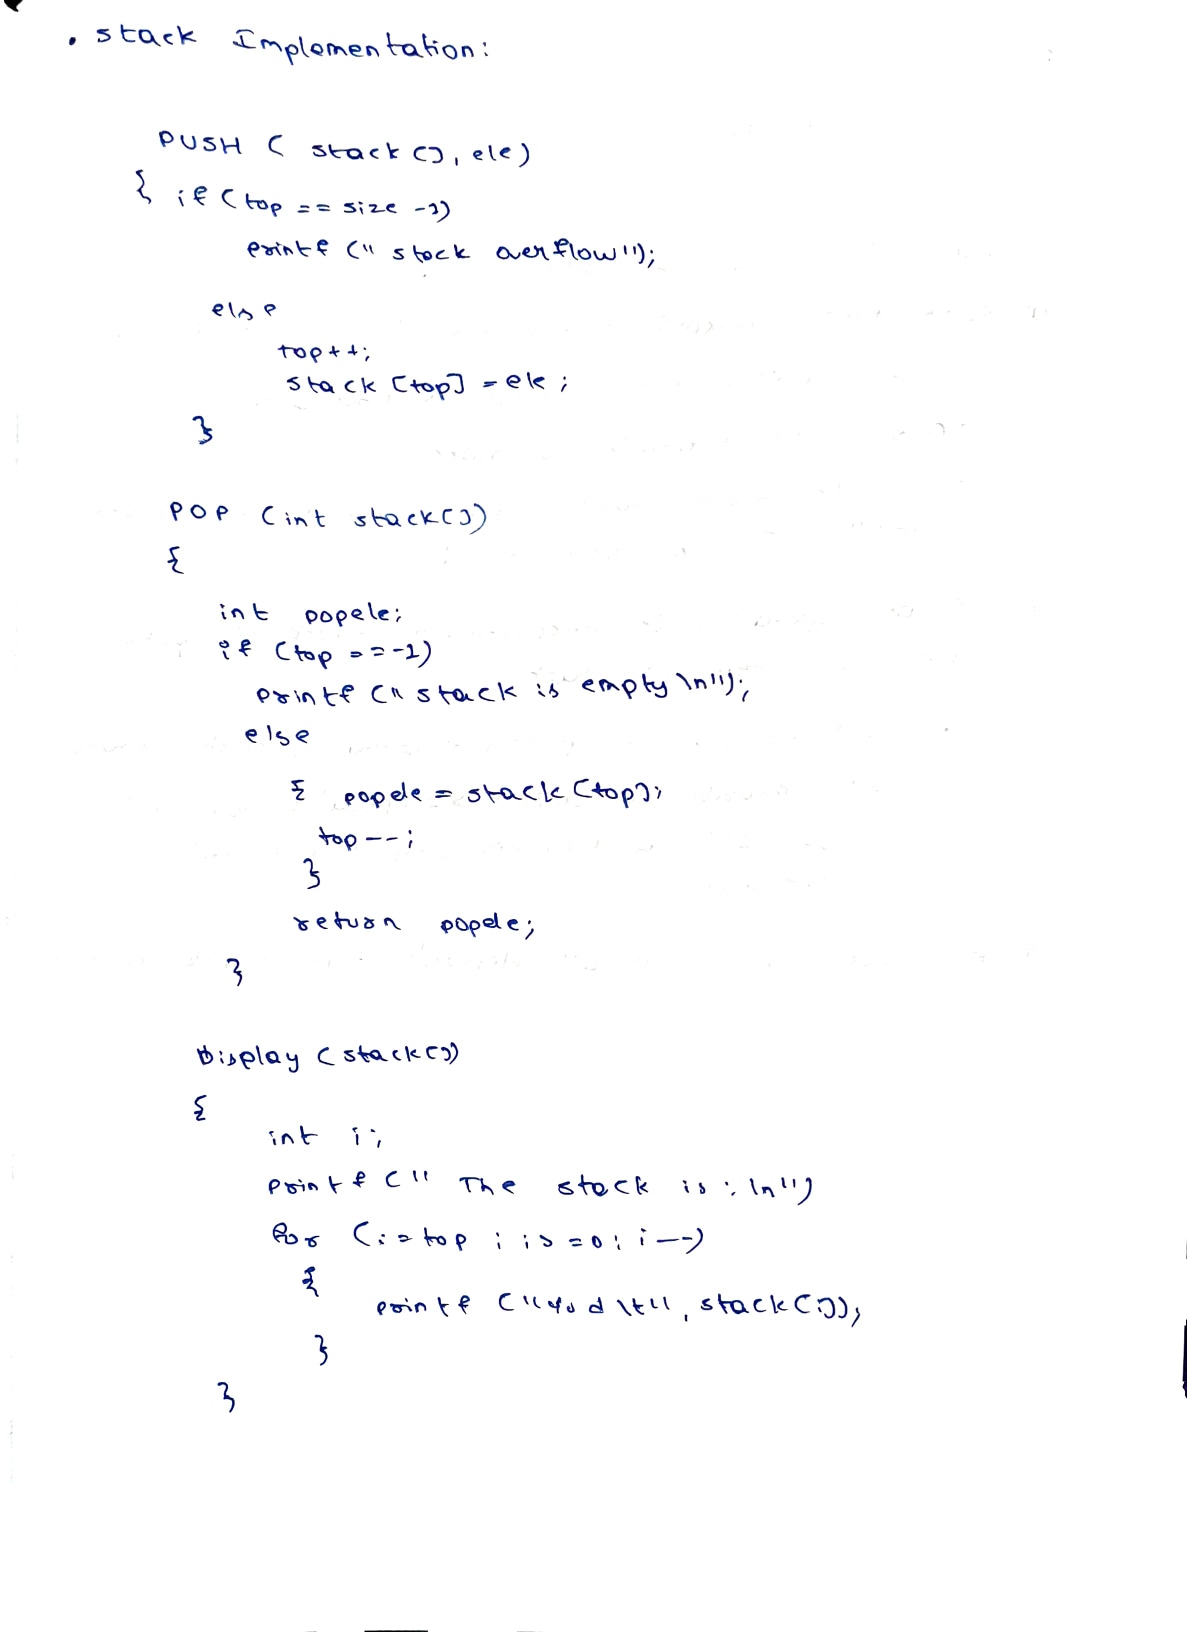 • stack Implementation:
PUSH ( stack [], ele)
{ if (top == size -1)
printf (" stack overflow");
else
top++;
stack [top] = ele ;
}
POP (int stack[])
{
int popele;
if (top == -1)
printf (" stack is empty \n");
else
{ popele = stack [top];
top --;
}
return popele;
}
Display ( stack[])
{
int i;
printf (" The stack is : \n")
for (i = top ; i > = 0 ; i --)
{
printf ("%d \t", stack [i]);
}
}